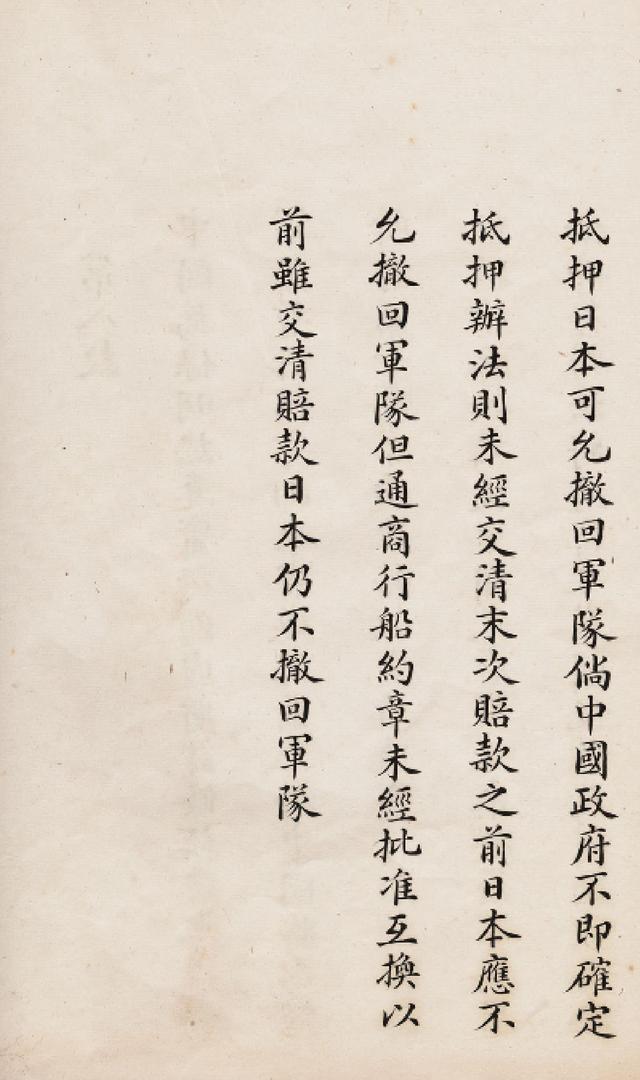 抵押日本可允撤回軍隊倘中國政府不即確定
抵押辦法則未經交清末次賠款之前日本應不
允撤回軍隊但通商行船約章未經批准互換以
前雖交清賠款日本仍不撤回軍隊